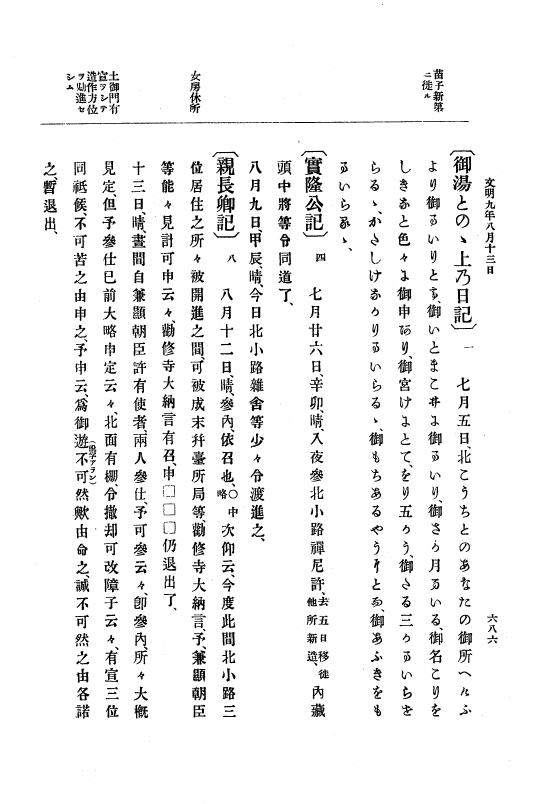 文明九年八月十三日
六八六
苗子新第
ニ徙ル
〔御湯とのゝ上乃日記〕 一 七月五日、北こうちとのあなたの御所へんふ
より御るいりとす、御いとまこ井よ御るいり、御さう月るいる、御名こりを
しきおと色々よ御申あり、御宮けよとて、をり五かう、御さる三つるいらせ
らるゝ、かさしけおかりるいらるゝ、御もちあるやうすとる、御あふきをも
るいらるゝ、
〔實隆公記〕 四 七月廿六日、辛卯、晴、入夜參北小路禪尼許、去五日移徙他所新造、内藏
頭中將等令同道了、
八月九日、甲辰、晴、今日北小路雜舍等少々令渡進之、
女房休所
〔親長卿記〕 八 八月十二日、晴、參内、依召也、○中略 次仰云、今度此間北小路三
位居住之所々被開進之間、可被成末幷臺所局等、勸修寺大納言、予、兼顯朝臣
等能々見計可申云々、勸修寺大納言有召、申□□□仍退出了、
土御門有
宣ヲシテ
造作方位
ヲ勘進セ
シム
十三日、晴、晝間自兼顯朝臣許有使者、兩人參仕、予可參云々、卽參内、所々大概
見定、但予參仕已前大略申定云々、北面有棚、令撤却可改障子云々、有宣三位
同祗候、不可苦之由申之、予申云、爲御遊不可然歟由命之、誠不可然之由各諾
之、暫退出、